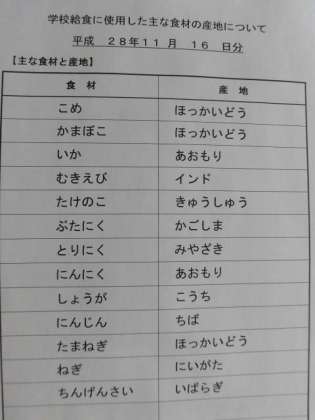 学校給食に使用した主な食材の産地について
平成 28年11月 16日分
【主な食材と産地】
食材 産地
こめ ほっかいどう
かまぼこ ほっかいどう
いか あおもり
むきえび インド
たけのこ きゅうしゅう
ぶたにく かごしま
とりにく みやざき
にんにく あおもり
しょうが こうち
にんじん ちば
たまねぎ ほっかいどう
ねぎ にいがた
ちんげんさい いばらぎ